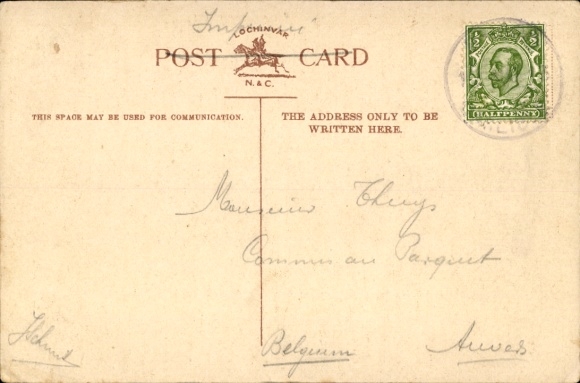 Imprimé
LOCHINVAR
POST CARD
N. & C.
THIS SPACE MAY BE USED FOR COMMUNICATION.
THE ADDRESS ONLY TO BE
WRITTEN HERE.
½ ½
HALFPENNY
Monsieur Thuys
Commis au Parquet
Belgium Anvers